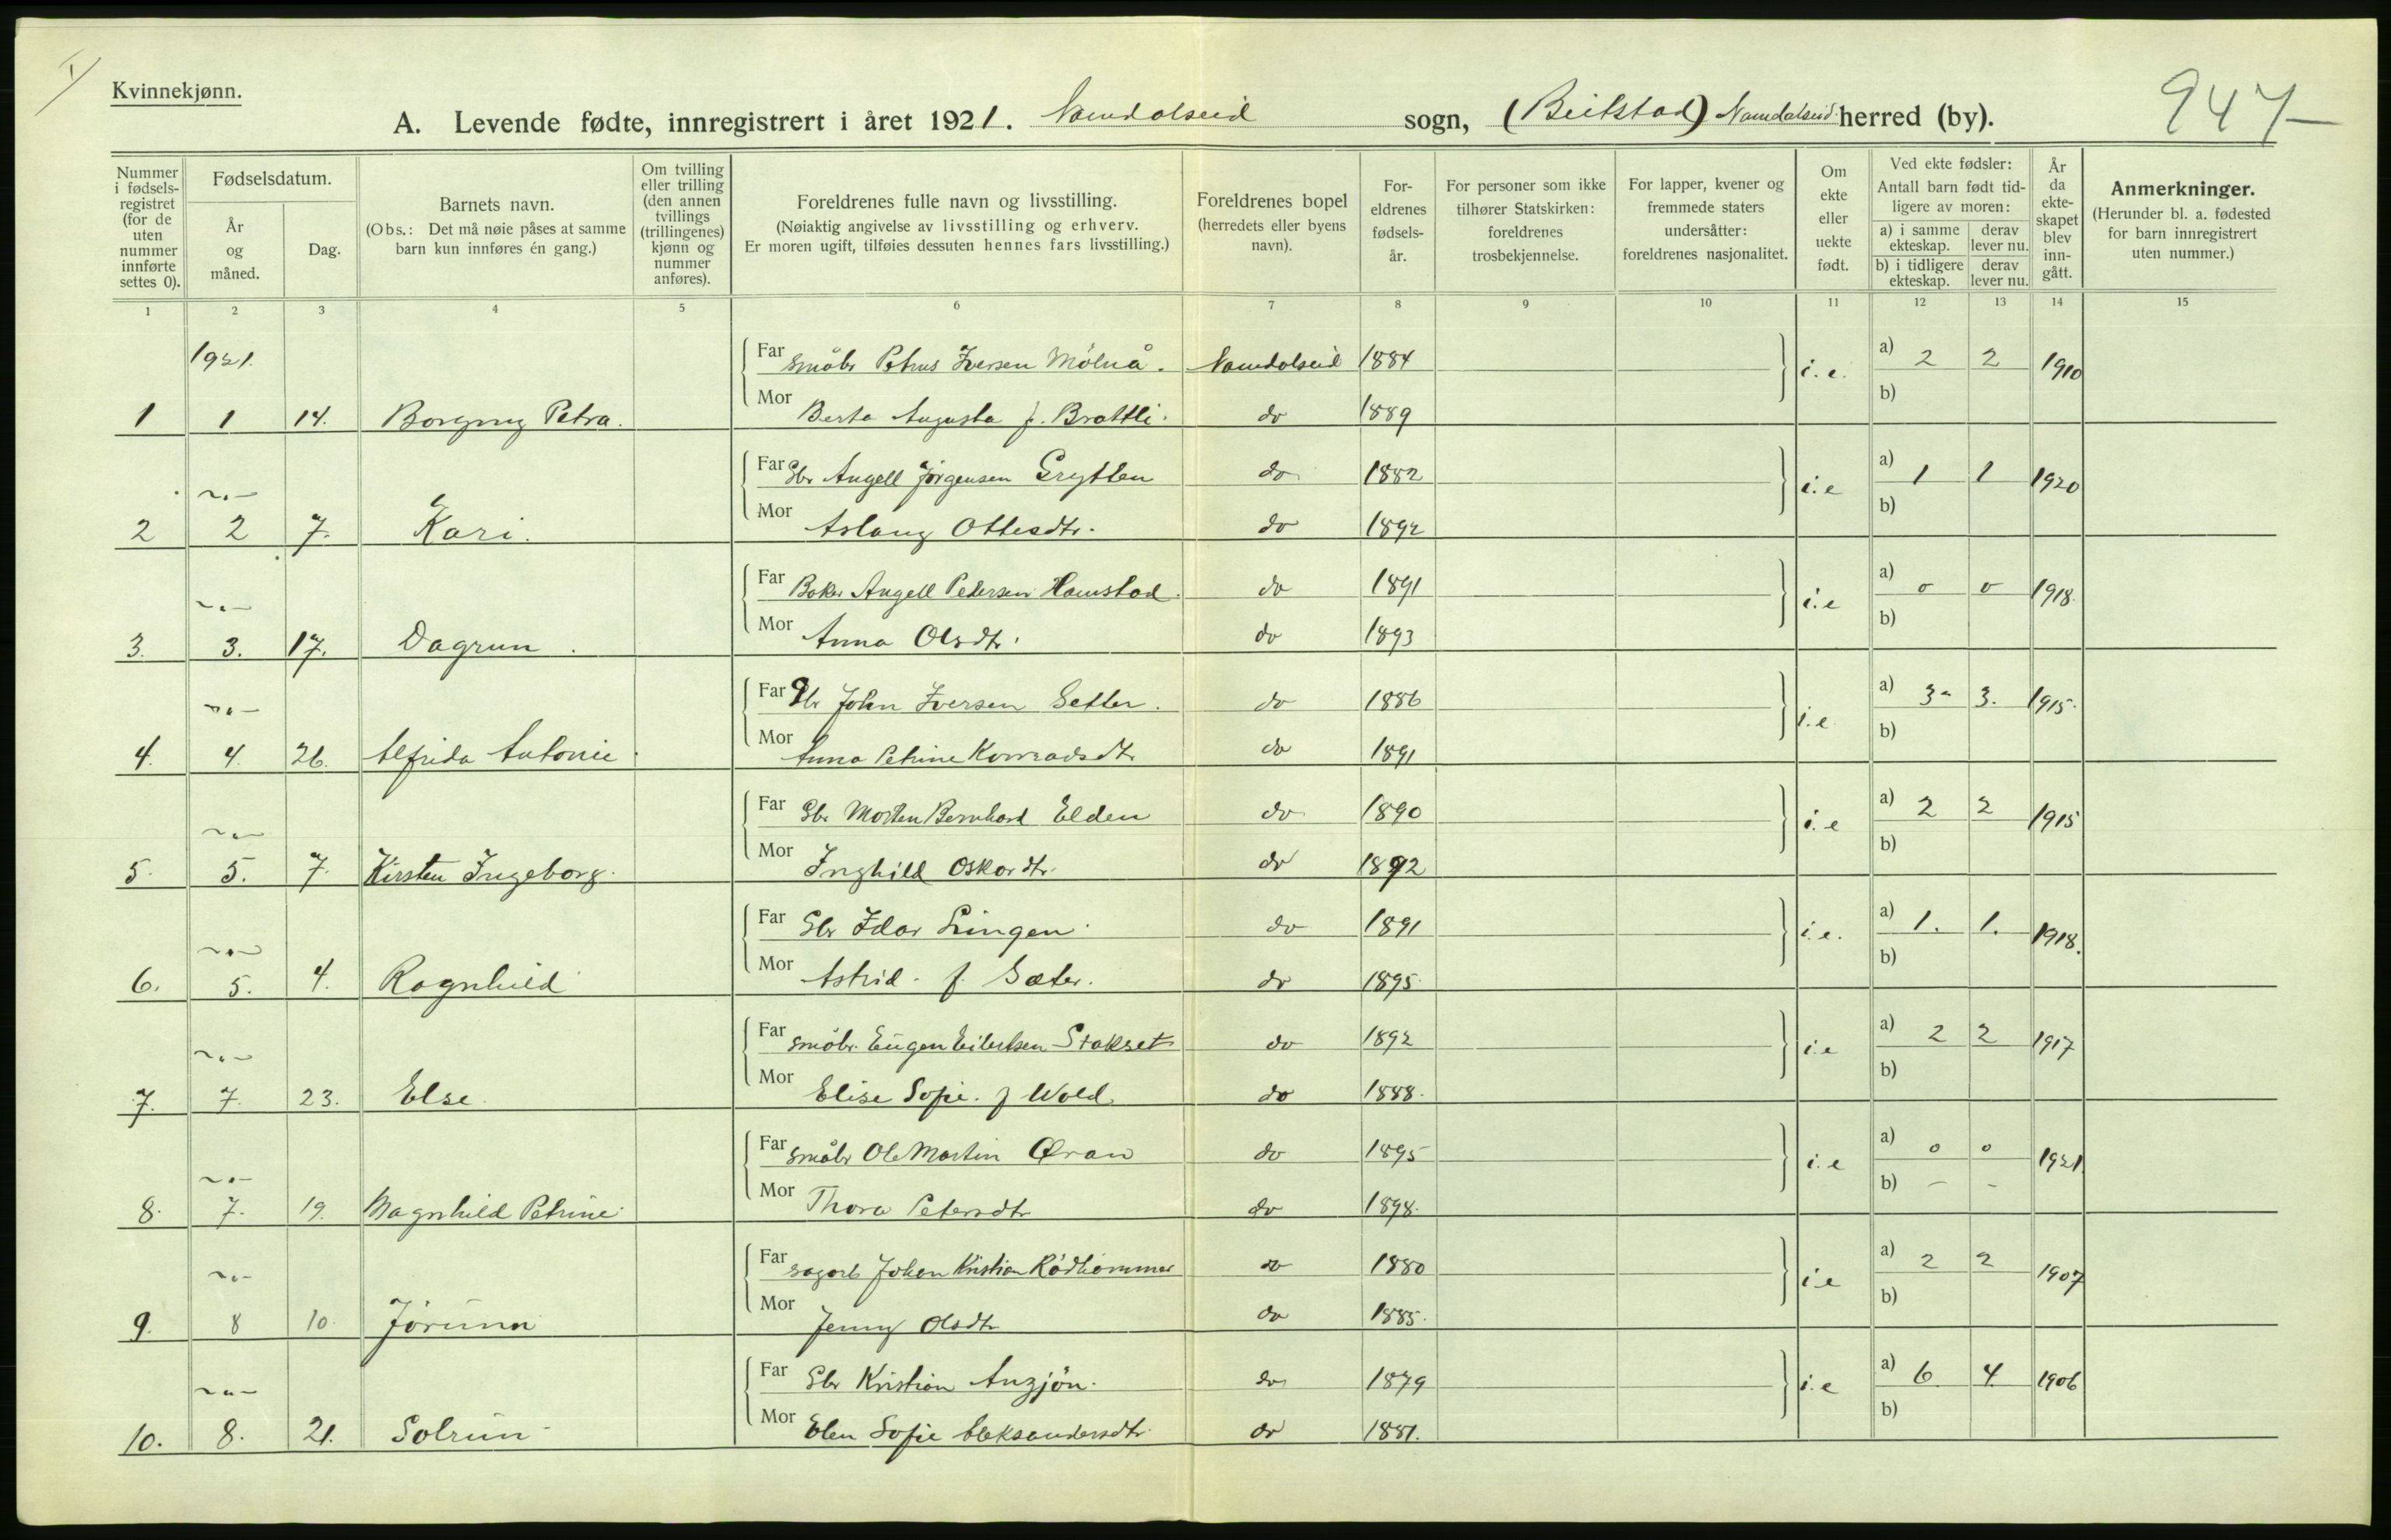 I/
Kvinnekjønn.
A. Levende fødte, innregistrert i året 1921. Namdalseid sogn, (Beitstad) Namdalseid herred (by).
947-
Nummer i fødselsregistret (for de uten nummer innførte settes 0).
Fødselsdatum.
År og måned.
Dag.
Barnets navn.
(Obs.: Det må nøie påses at samme barn kun innføres én gang.)
Om tvilling eller trilling (den annen tvillings (trillingenes) kjønn og nummer anføres).
Foreldrenes fulle navn og livsstilling.
(Nøiaktig angivelse av livsstilling og erhverv.
Er moren ugift, tilføies dessuten hennes fars livsstilling.)
Foreldrenes bopel
(herredets eller byens navn).
Foreldrenes fødselsår.
For personer som ikke tilhører Statskirken: foreldrenes trosbekjennelse.
For lapper, kvener og fremmede staters undersåtter: foreldrenes nasjonalitet.
Om ekte eller uekte født.
Ved ekte fødsler:
Antall barn født tidligere av moren:
a) i samme ekteskap. derav lever nu.
b) i tidligere ekteskap. derav lever nu.
År da ekteskapet blev inngått.
Anmerkninger.
(Herunder bl. a. fødested for barn innregistrert uten nummer.)
1 2 3 4 5 6 7 8 9 10 11 12 13 14 15
1921. Far Småbr Petrus Iversen Mölnå. Namdalseid 1884 i.e. a) 2 2 1910
1 1 14. Borgny Petra. Mor Berta Augusta f. Brattli. do 1889 b)
~"~ Far Gbr Angell Jörgensen Grytten do 1882 i.e a) 1 1 1920
2 2 7. Kari. Mor Aslaug Ottesdtr. do 1892 b)
~"~ Far Baker Angell Pedersen Hamstad. do 1891 i.e a) 0 0 1918.
3. 3. 17. Dagrun. Mor Anna Olsdtr. do 1893 b)
~"~ Far Gbr John Iversen Setter. do 1886 i.e. a) 3 3. 1915.
4. 4. 26. Alfrida Antonie. Mor Anna Petrine Konradsdtr do 1891 b)
~"~ Far Gbr Morten Bernhard Elden do 1890 i.e a) 2 2 1915
5. 5. 7. Kirsten Ingeborg. Mor Inghild Oskardtr. do 1892 b)
~"~ Far Gbr Idar Lingen do 1891 i.e. a) 1. 1. 1918.
6. 5. 4. Ragnhild Mor Astrid. f. Sæter. do 1895. b)
~"~ Far Småbr. Eugen Eilertsen Stakset do 1892 i.e a) 2 2 1917
7. 7. 23. Else. Mor Elise Sofie. f Wold. do 1888. b)
~"~ Far Småbr Ole Martin Øran do 1895 i.e a) 0 0 1921
8. 7. 19. Magnhild Petrine. Mor Thora Petersdtr do 1898. b) - -
~"~ Far Sagarb Johan Kristian Rödhammer do 1880 i.e a) 2 2 1907
9. 8 10. Jörunn Mor Jenny Olsdtr do 1885. b)
~"~ Far Gbr Kristian Anzjön. do 1879 i.e a) 6 4 1906
10. 8. 21. Solrun Mor Elen Sofie Aleksandersdtr. do 1881. b)